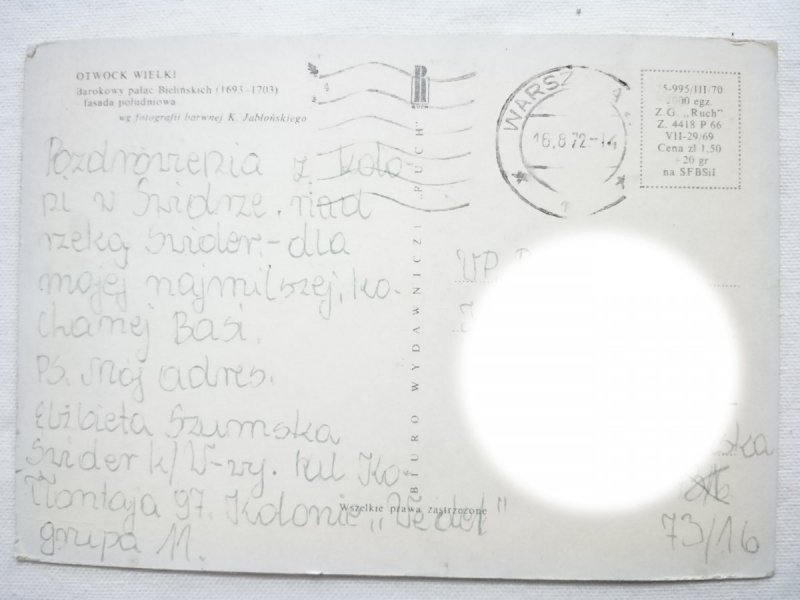 OTWOCK WIELKI
Barokowy pałac Bielińskich (1693–1703)
fasada południowa
wg fotografii barwnej K. Jabłońskiego
Pozdrowienia z Kolo-
ni w Świdrze, nad
rzeką Świder,-dla
mojej najmilszej, ko-
chanej Basi.
PS. Mój adres.
Elżbieta Szumska
Świder k/W-wy. kul Ko-
łłontaja 97. Kolonie „Wedel"
grupa 11.
BIURO WYDAWNICZE „RUCH"
Wszelkie prawa zastrzeżone
WARSZ A
16.8.72.-14
5-995/III/70
2000 egz.
Z.G. „Ruch"
Z. 4418 P 66
VII-29/69
Cena zł 1,50
+20 gr
na SFBSiI
WP.
73/16